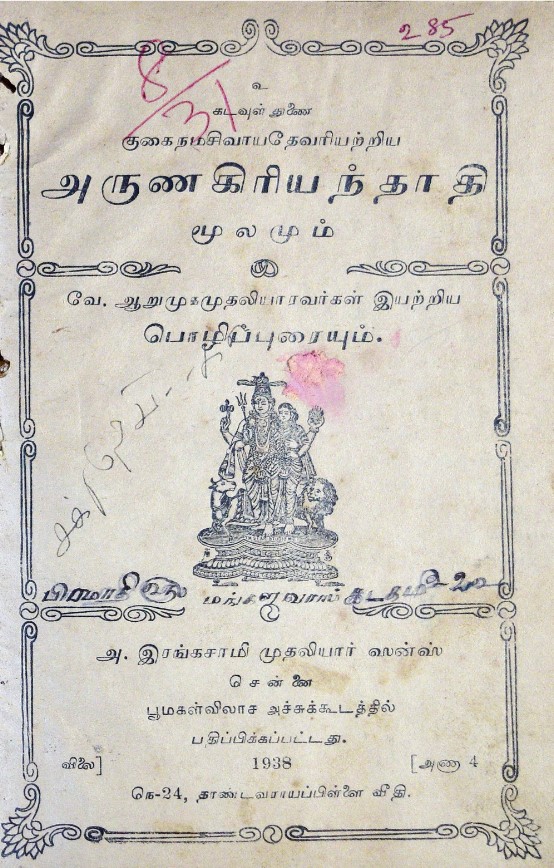 285
8/31
உ
கடவுள் துணை
குகைநமசிவாயதேவரியற்றிய
அருணகிரியந்தாதி
மூலமும்
வே. ஆறுமுகமுதலியாரவர்கள் இயற்றிய
பொழிப்புரையும்.
அ. இரங்கசாமி முதலியார் ஸன்ஸ்
சென்னை
பூமகள்விலாச அச்சுக்கூடத்தில்
பதிப்பிக்கப்பட்டது.
விலை] 1938 [அணா 4
நெ-24, தாண்டவராயப்பிள்ளை வீதி.